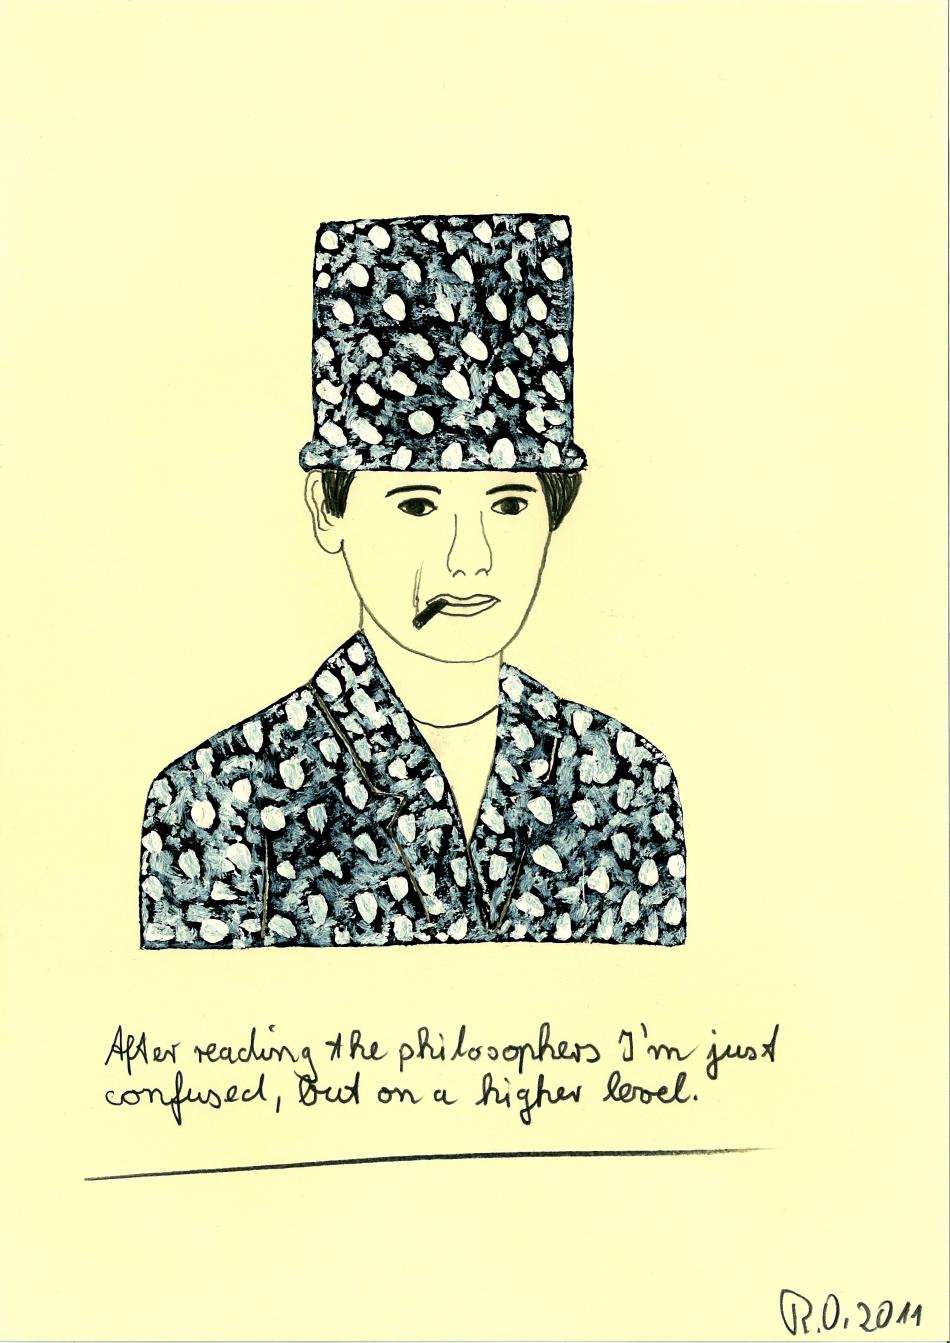 After reading the philosophers I'm just
confused, but on a higher level.
R.O. 2011